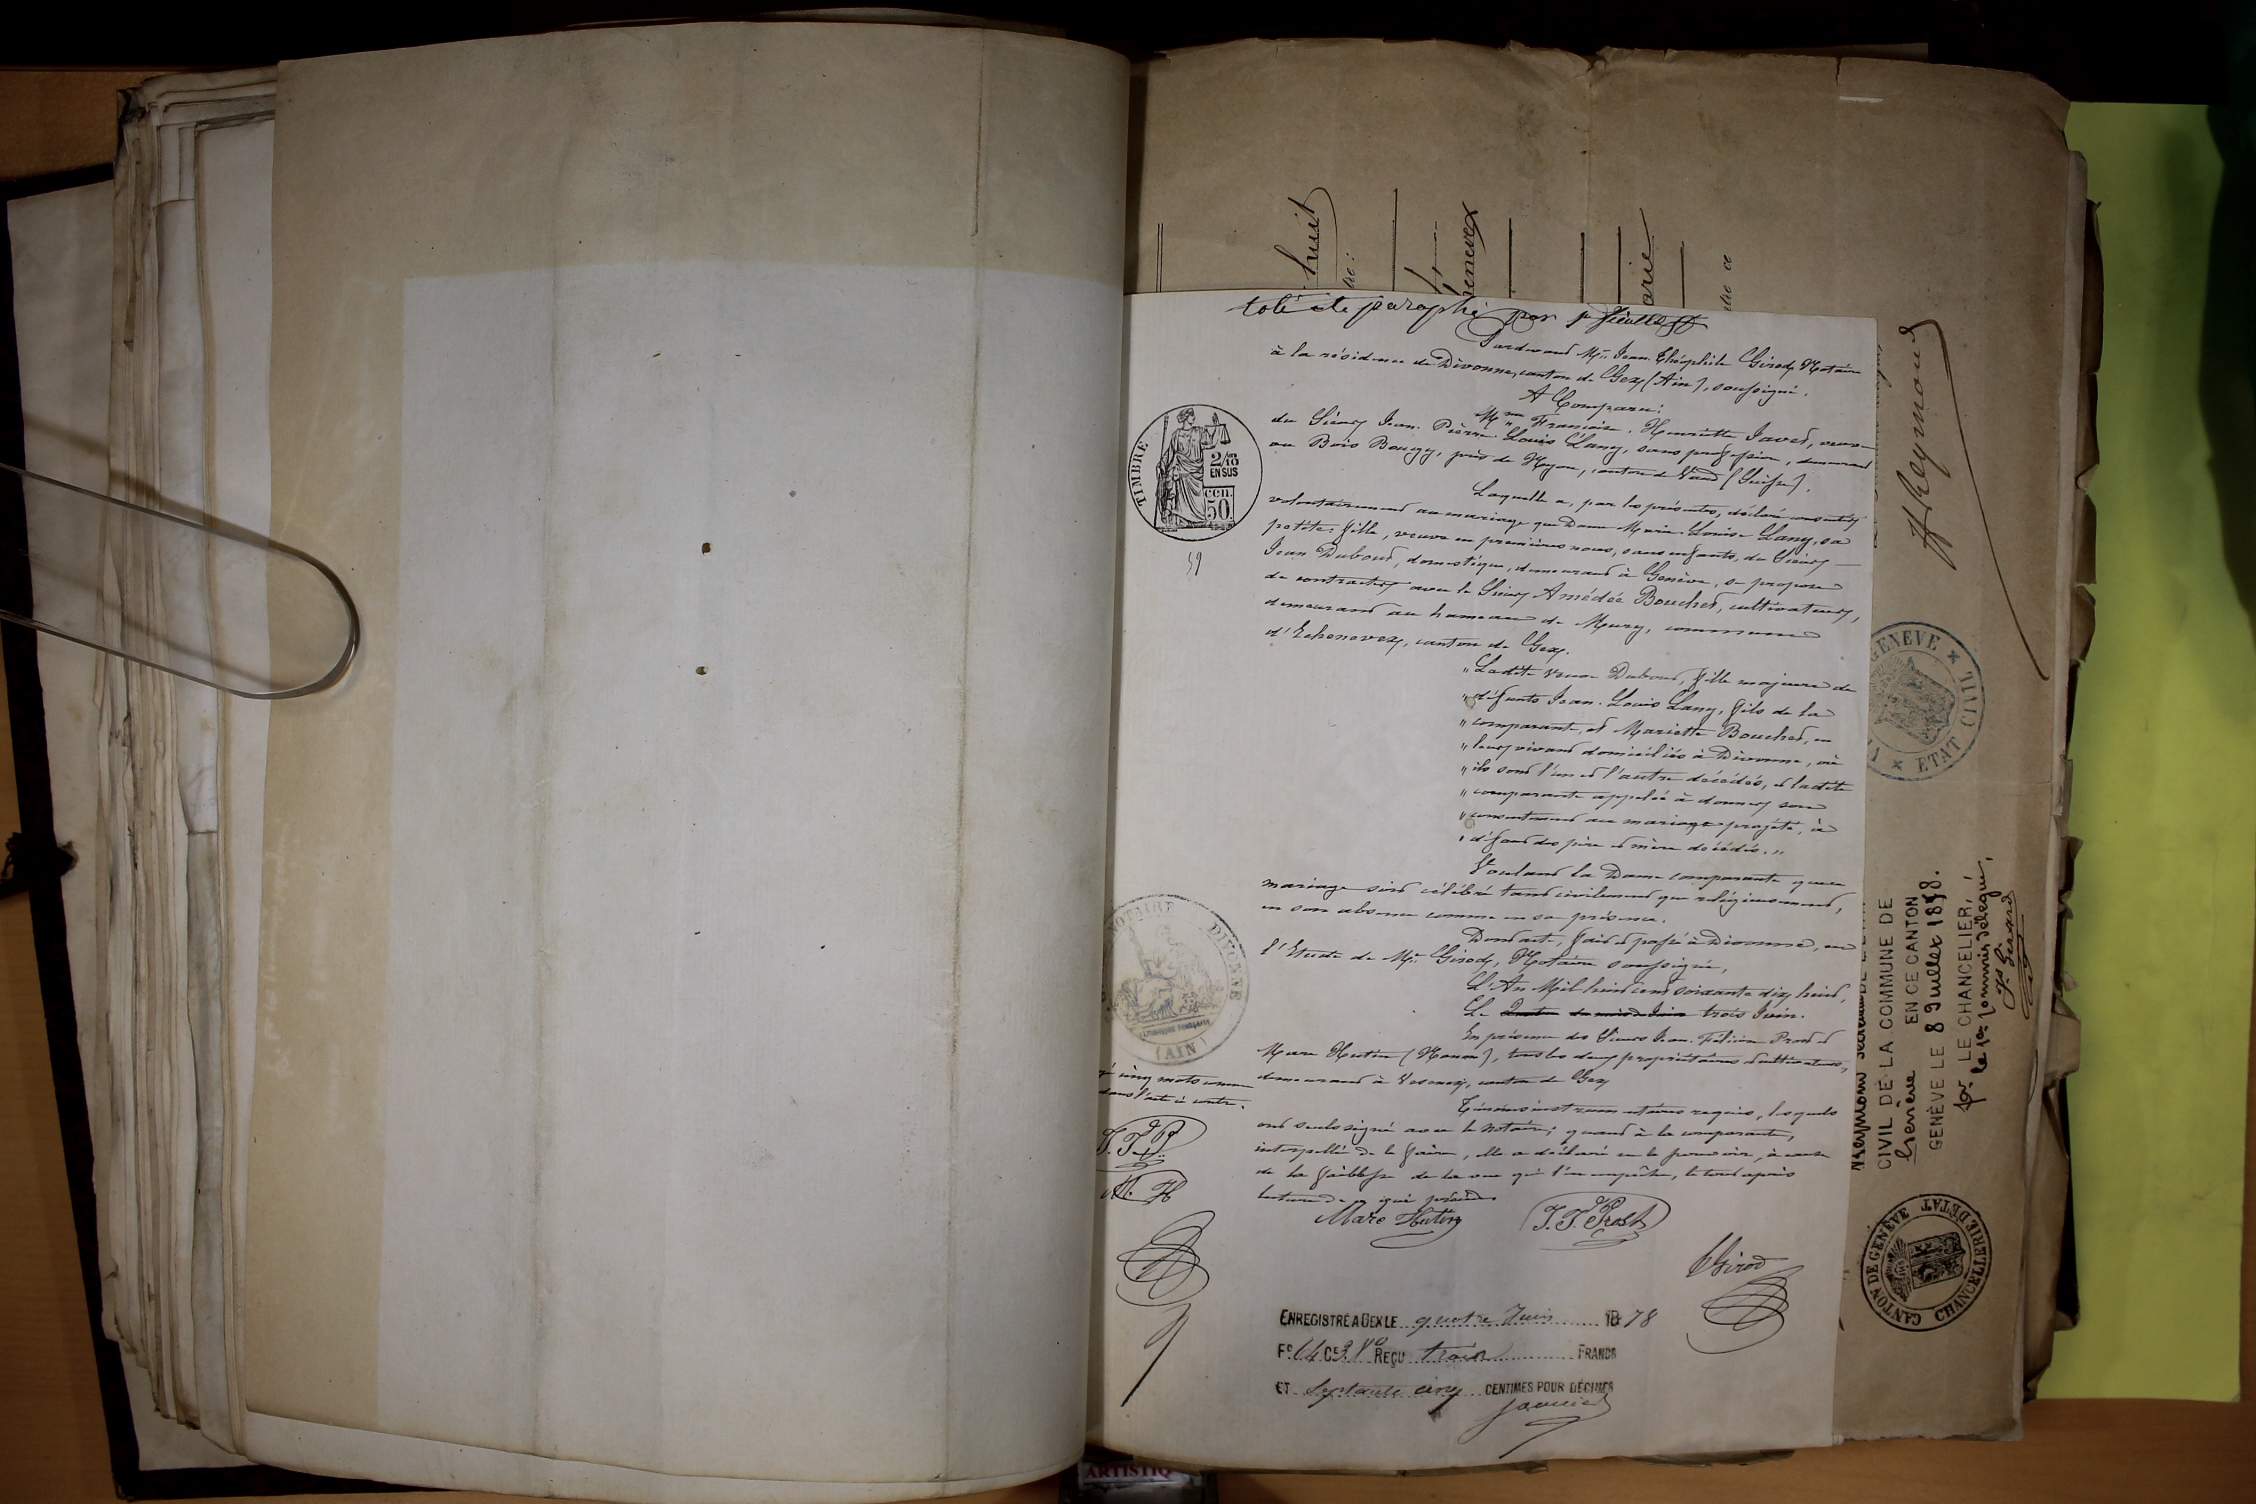 huit
enevex
arie
coté et paraphé par
Pardevant Me. Jean Théophile Girod, Notaire
à la résidence de Divonne, canton de Gex (Ain), soussigné.
A Comparu:
Mme Françoise Henriette Javet, veuve
du Sieur Jean Pierre Louis Lany, sans profession, demeurant
au Bois Bougy, près de Nyon, canton de Vaud (Suisse).
Laquelle a, par les présentes, déclaré consentir
volontairement au mariage que Dame Marie Louise Lany, sa
petite fille, veuve en premières noces, sans enfants, du Sieur
Jean Dubout, domestique, demeurant à Genève, se propose
de contracter avec le Sieur Amédée Bouchet, cultivateur,
demeurant au hameau de Mury, commune
d'Echenevex, canton de Gex.
"Ladite veuve Dubout, fille majeure de
"défunts Jean Louis Lany, fils de la
"comparante, et Mariette Bouchet, en
"leur vivant domiciliés à Divonne, où
"ils sont l'un et l'autre décédés, et ladite
"comparante appelée à donner son
"consentement au mariage projeté, à
"défaut des père et mère décédés."
Voulant la Dame comparante que ce
mariage soit célébré tant civilement que religieusement,
en son absence comme en sa présence.
Dont acte, fait et passé à Divonne, en
l'Etude de Me. Girod, Notaire soussigné,
L'An Mil huit cent soixante dix huit,
Le trois Juin.
En présence des Sieurs Jean Félicien Prost et
Marc Hutin (Manon), tous les deux propriétaires cultivateurs,
demeurant à Vesancy, canton de Gex
Témoins instrumentaires requis, lesquels
ont seuls signé avec le notaire; quant à la comparante,
interpellée de le faire, elle a déclaré ne le pouvoir, à cause
de la faiblesse de la vue qui l'en empêche, le tout après
lecture de ce qui précède.
Marc Hutin
J. F. Prost
Girod
TIMBRE
2/10
EN SUS
CEN.
50.
59
NOTAIRE DIVONNE
(AIN)
cinq mots comme
dans l'acte ci contre.
J. F. P.
M. H
ENREGISTRÉ A GEX LE quatre Juin 1878
F° 14 C° 3 V° REÇU trois FRANCS
ET Septante cinq CENTIMES POUR DÉCIMES
HReymond
GENÈVE
ETAT CIVIL
CIVIL DE LA COMMUNE DE
Genève EN CE CANTON
GENÈVE LE 8 Juillet 1878.
pr. LE CHANCELIER,
le 1er commis délégué,
CANTON DE GENÈVE
CHANCELLERIE D'ETAT
ARTISTIQ